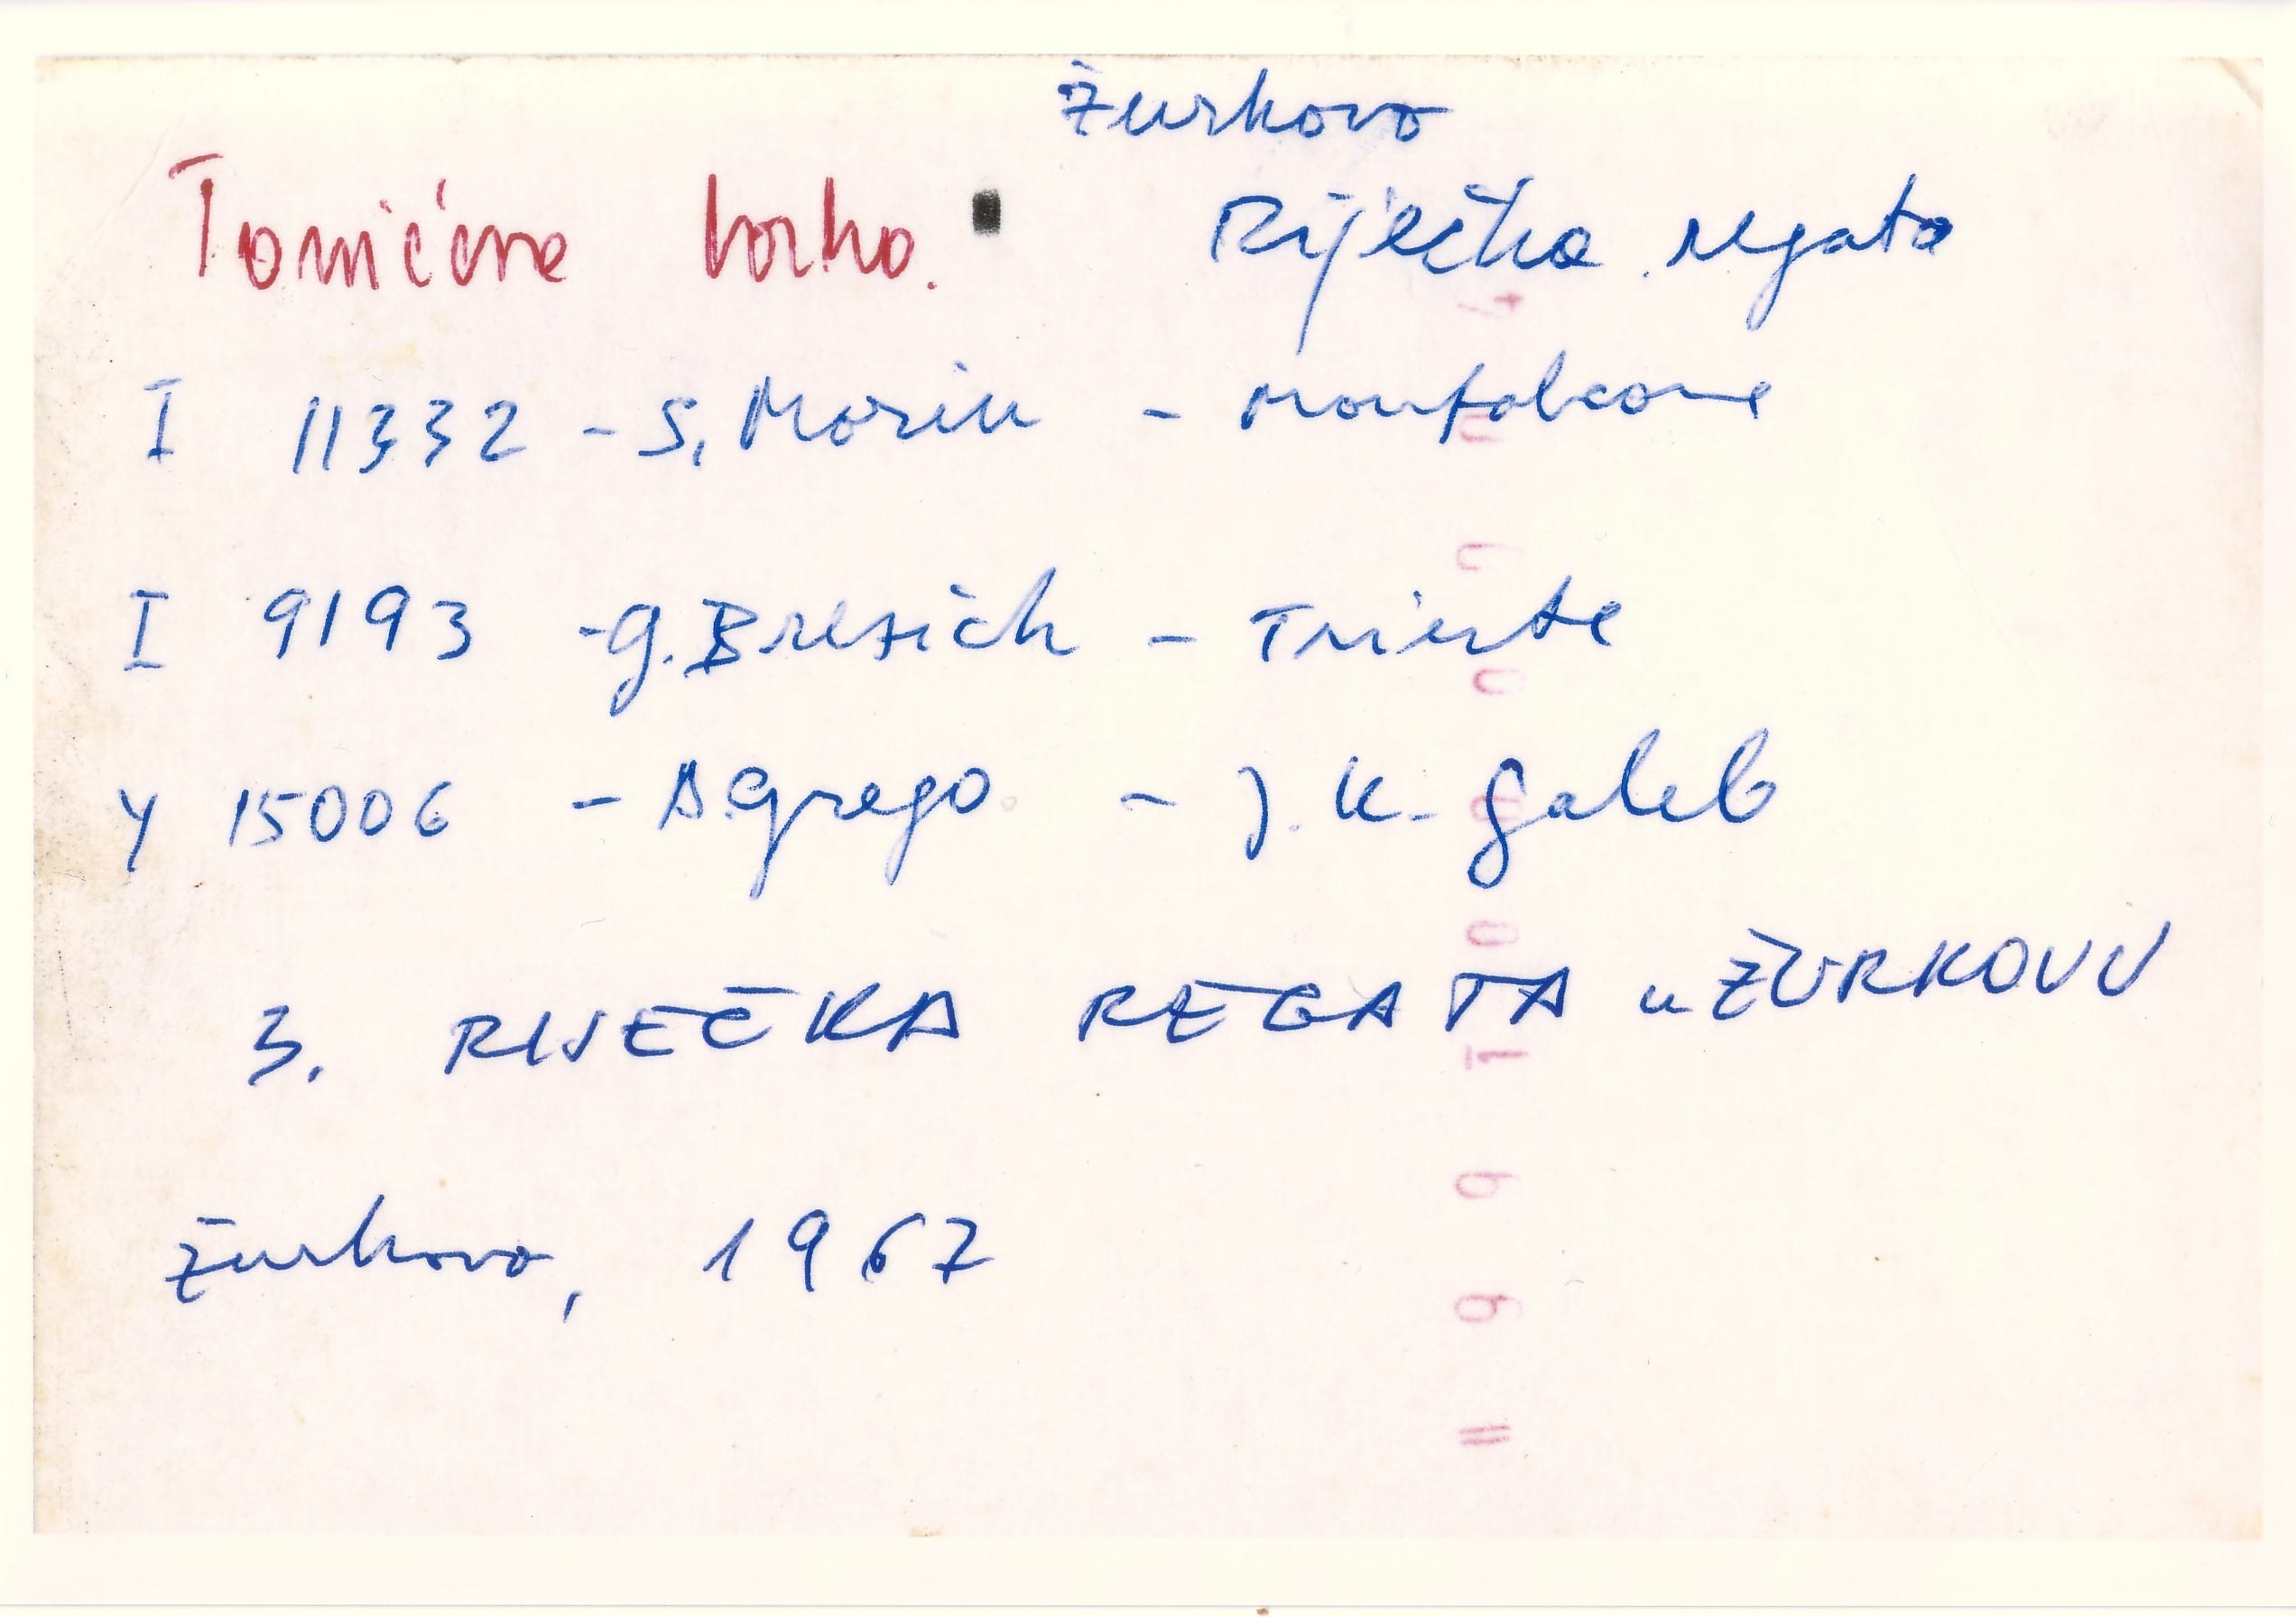 Žurkovo
Tomićeve barka. Riječka regata
I 11332 - S. Morin - Monfalcone
I 9193 - G. Bresich - Trieste
Y 15006 - A. Grego - J. K. Galeb
3. RIJEČKA REGATA u ŽURKOVU
Žurkovo, 1967